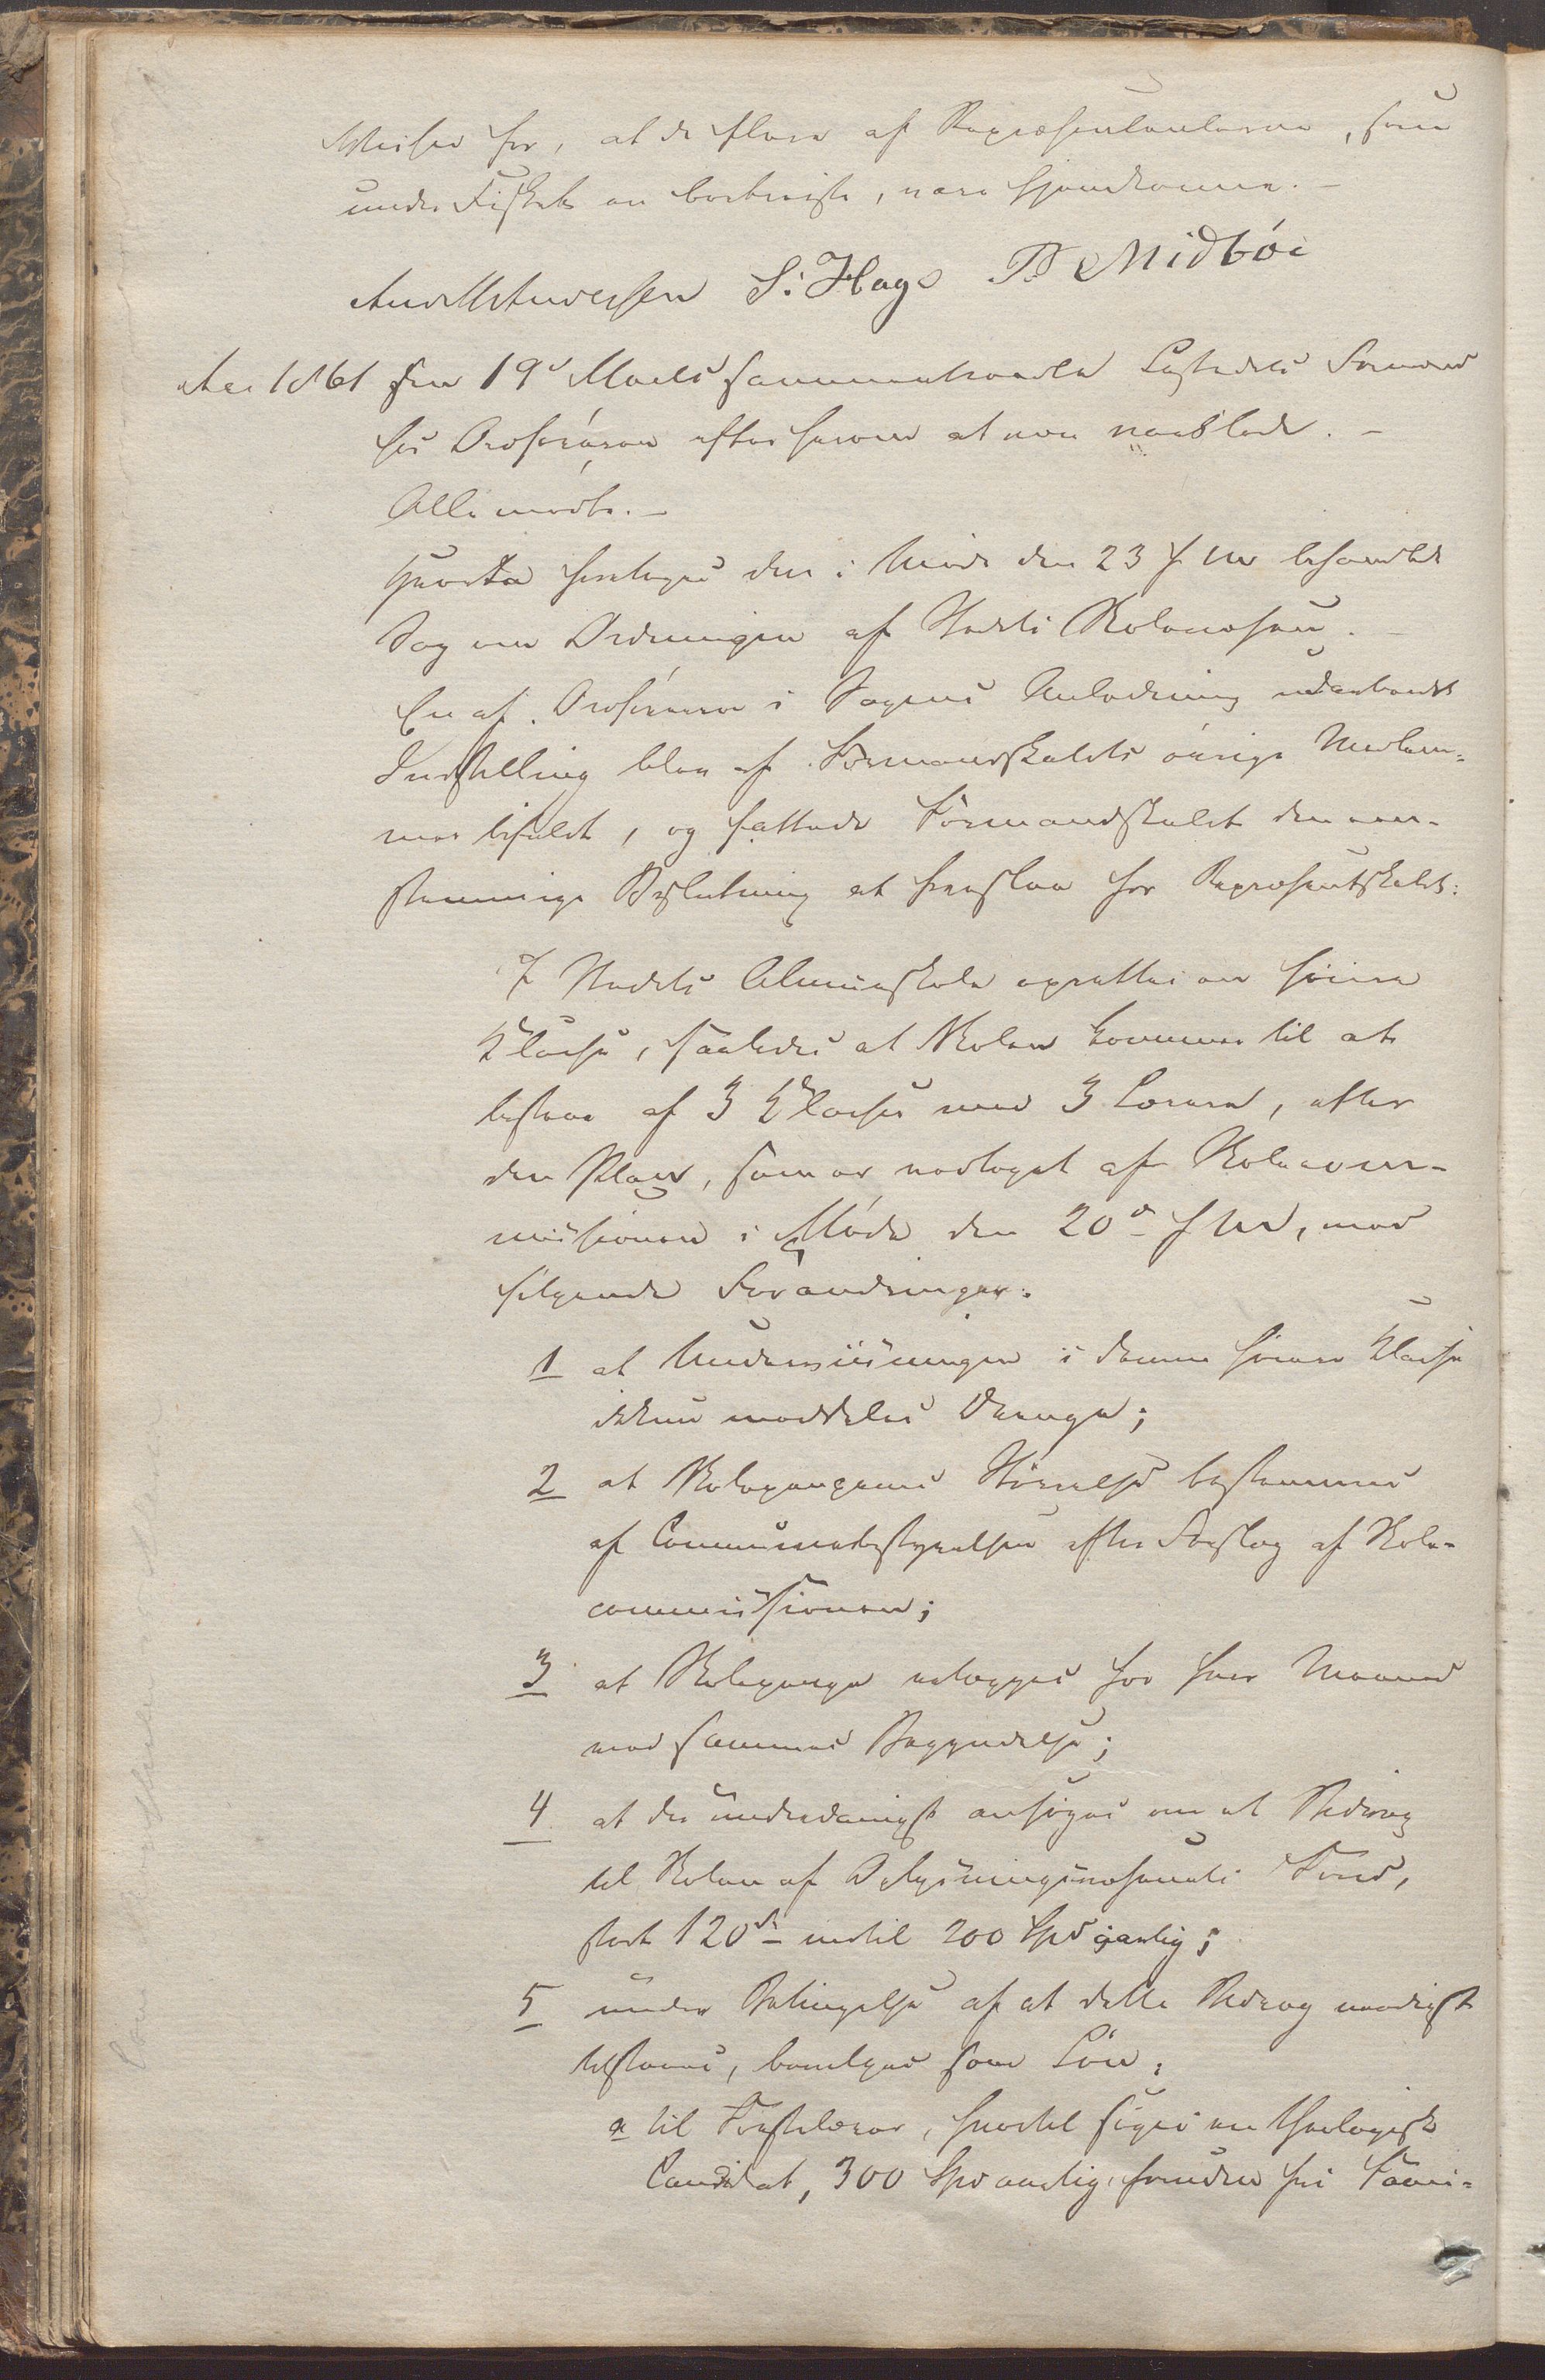 for, at de flere af Repræsentanterne, som
under Fisket er bortreiste, ere hjemkomne. –
S. Hage B Midbøe
Aar 1861 den 19de Marts sammentraadte Ladestedets Formænd
hos Ordføreren efter herom at være varslede. –
Alle mødte. –
Hvorda foretoges den i Møde den 23 f M behandlede
Sag om Ordningen af Stedets Skolevæsen. –
En af Ordføreren i Sagens Anledning udarbeidet
Indstilling blev af Formandskabets øvrige Medlem-
mer bifaldt, og fattede Formandskabet den een-
stemmige Beslutning at foreslaa for Repræsentskabet:
I Stedets Almueskole oprettes en høiere
Klasse, saaledes at Skolen kommer til at
bestaae af 3 Klasser med 3 Lærere, efter
den Plan, som er vedtaget af Skolecom-
missionen i Møde den 20de f M, med
følgende Forandringer:
1 at Underviisningen i denne høiere Klasse
ikkun meddeles Drenge;
2 at Skolepengenes Størrelse bestemmes
af Communebestyrelsen efter Forslag af Skole-
commissionen;
3 at Skolepenge erlægges for hver Maaned
ved sammes Begyndelse;
4 at der underdanigst ansøges om et Bidrag
til Skolen af Oplysningsvæsenets Fond,
stort 120 indtil 200 Spd aarlig;
5 under Betingelse af at dette Bidrag naadigst
tilstaaes, bevilges som Løn:
a til Førstelærer, hvortil søges en theologisk
Candidat, 300 Spd aarlig foruden fri Fami-